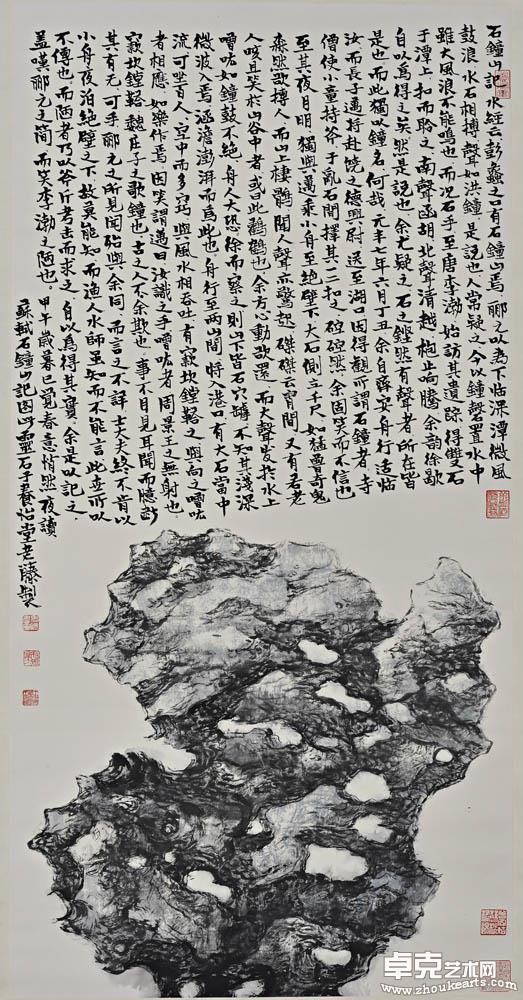 石鐘山記 水經云彭蠡之口有石鐘山焉酈元以為下临深潭微風
鼓浪水石相搏聲如洪鐘是說也人常疑之今以鐘磬置水中
雖大風浪不能鳴也而况石乎至唐李渤始訪其遗踪得雙石
于潭上扣而聆之南聲函胡北聲清越枹止响騰余韵徐歇
自以為得之矣然是說也余尤疑之石之鏗然有聲者所在皆
是也而此獨以鐘名何哉元丰七年六月丁丑余自齊安舟行适临
汝而長子邁将赴饶之德興尉送至湖口因得觀所謂石鐘者寺
僧使小童持斧于亂石間擇其一二扣之硿硿然余固笑而不信也
至其夜月明獨與邁乘小舟至绝壁下大石側立千尺如猛獸奇鬼
森然欲搏人而山上棲鶻聞人聲亦驚起磔磔云霄間又有若老
人咳且笑於山谷中者或曰此鸛鶴也余方心動欲還而大聲發於水上
噌吰如鐘鼓不绝舟人大恐徐而察之則山下皆石穴罅不知其淺深
微波入焉涵澹澎湃而為此也舟行至两山間将入港口有大石當中
流可坐百人空中而多竅與風水相吞吐有窾坎鏜鞳之聲與向之噌吰
者相應如樂作焉因笑謂邁曰汝識之乎噌吰者周景王之無射也
窾坎鏜鞳魏庄子之歌鐘也古之人不余欺也事不目見耳聞而臆斷
其有无可乎酈元之所見聞殆與余同而言之不詳士大夫终不肯以
小舟夜泊绝壁之下故莫能知而漁人水師虽知而不能言此世所以
不傳也而陋者乃以斧斤考击而求之自以為得其實余是以記之
盖嘆酈元之簡而笑李渤之陋也
甲午歲暮已覺春意悄然夜讀
蘇軾石鐘山記因此靈石于養怡堂老藤製
卓克艺术网
www.zhoukearts.com